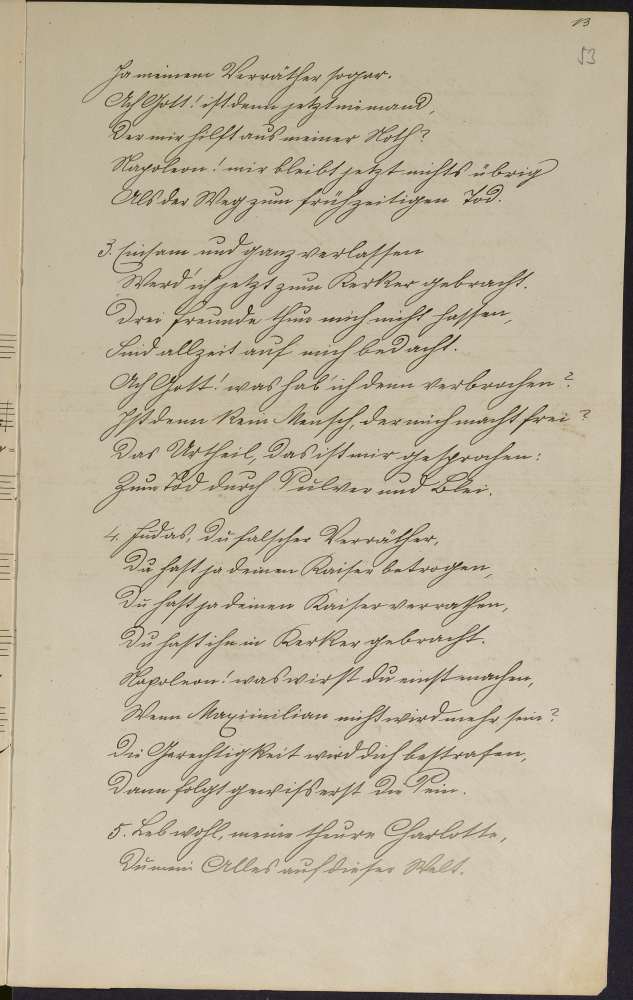 13
53
Ja meinem Verräther sogar.
Ach Gott! ist denn jetzt niemand,
Der mir hilft aus meiner Noth?
Napoleon! mir bleibt jetzt nichts übrig
Als der Weg zum frühzeitigen Tod.
3. Einsam und ganz verlassen
Werd' ich jetzt zum Kerker gebracht.
Drei Freunde thun mich nicht hassen,
Sind allzeit auf mich bedacht.
Ach Gott! was hab' ich denn verbrochen?
Ist denn kein Mensch, der mich macht frei?
Das Urtheil, das ist mir gesprochen:
Zum Tod durch Pulver und Blei.
4. Judas, du falscher Verräther,
Du hast ja deinen Kaiser betrogen,
Du hast ja deinen Kaiser verrathen,
Du hast ihn in Kerker gebracht.
Napoleon! was wirst du einst machen,
Wenn Maximilian nicht wird mehr sein?
Die Gerechtigkeit wird dich bestrafen,
Dann folgt gewiss erst die Pein.
5. Leb wohl, meine theure Charlotte,
Du mein Alles auf dieser Welt.